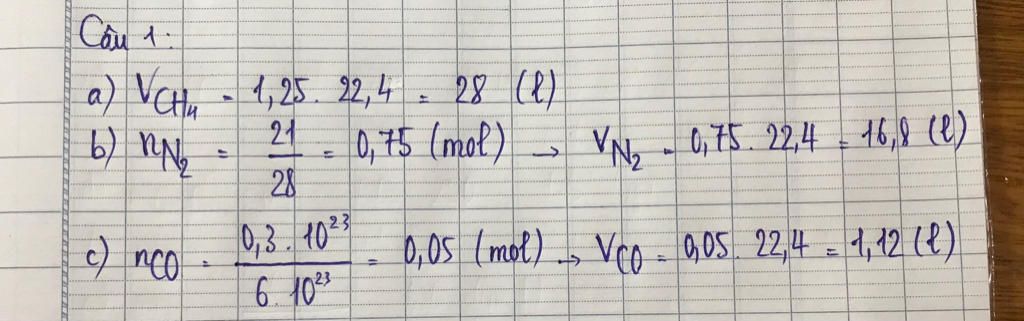 Câu 1:
a) V_CH₄ = 1,25. 22,4 = 28 (l)
b) n_N₂ = 21/28 = 0,75 (mol) → V_N₂ = 0,75. 22,4 = 16,8 (l)
c) n_CO = 0,3 . 10²³/6 . 10²³ = 0,05 (mol) → V_CO = 0,05. 22,4 = 1,12 (l)